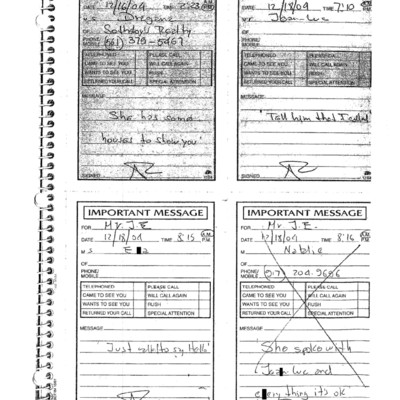 DATE 12/16/09 TIME 2:23
M S
OF Sotheby's Realty
PHONE/ MOBILE (561) 379-5467
TELEPHONED PLEASE CALL
CAME TO SEE YOU WILL CALL AGAIN
WANTS TO SEE YOU RUSH
RETURNED YOUR CALL SPECIAL ATTENTION
MESSAGE
She has some
houses to show you
SIGNED
DATE 12/18/09 TIME 7:10
M r. Jean-Luc
OF
PHONE/ MOBILE
TELEPHONED PLEASE CALL
CAME TO SEE YOU WILL CALL AGAIN
WANTS TO SEE YOU RUSH
RETURNED YOUR CALL SPECIAL ATTENTION
MESSAGE
"Tell him that I called
SIGNED
IMPORTANT MESSAGE
FOR Mr. J.E.
DATE 12/18/09 TIME 8:15 A.M. P.M.
M s E a
OF
PHONE/ MOBILE
TELEPHONED PLEASE CALL
CAME TO SEE YOU WILL CALL AGAIN
WANTS TO SEE YOU RUSH
RETURNED YOUR CALL SPECIAL ATTENTION
MESSAGE
"Just called to say Hello"
IMPORTANT MESSAGE
FOR Mr. J.E.
DATE 12/18/09 TIME 8:16 A.M. P.M.
M
OF
PHONE/ MOBILE 204-9686
TELEPHONED PLEASE CALL
CAME TO SEE YOU WILL CALL AGAIN
WANTS TO SEE YOU RUSH
RETURNED YOUR CALL SPECIAL ATTENTION
MESSAGE
She spoke with
Luc and
everything it's ok